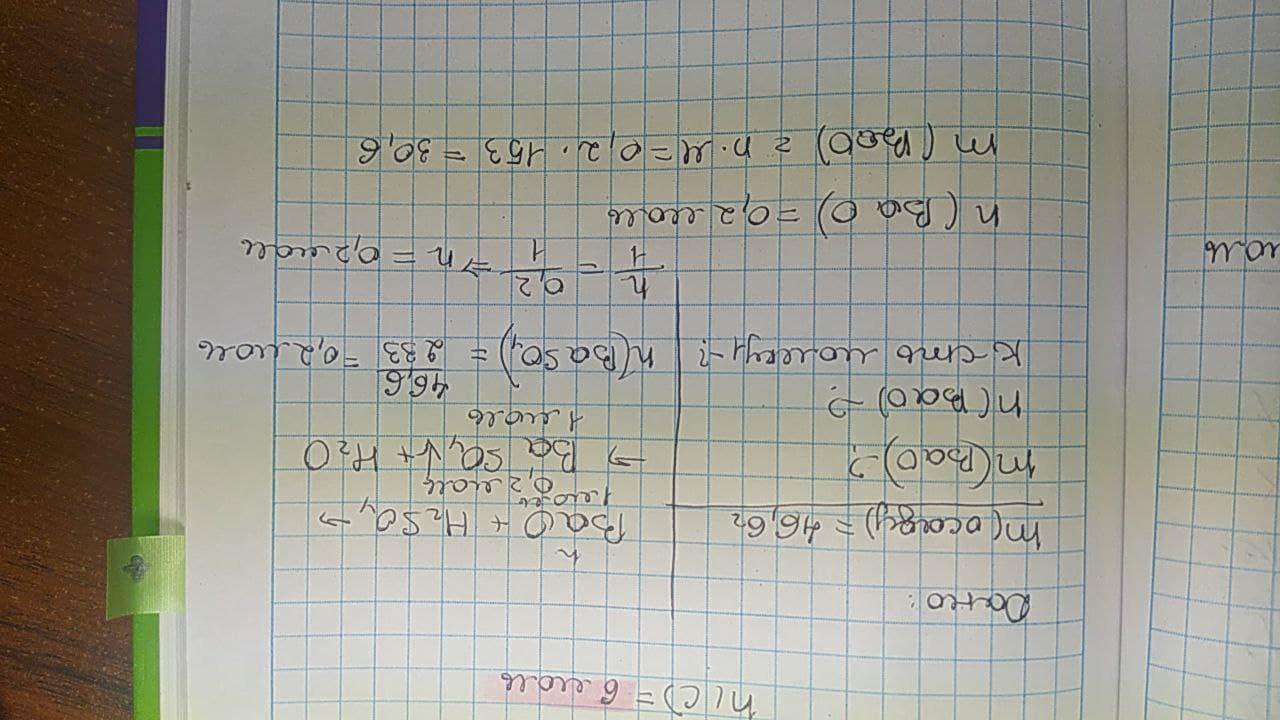 n(C) = 6 моль
Дано:
m(осаду) = 46,6г
m(BaO) -?
n(BaO) -?
к-сть молекул -?
n
BaO + H₂SO₄ →
1 моль
0,2 моль
→ BaSO₄↓ + H₂O
1 моль
n(BaSO₄) = 46,6/233 = 0,2 моль
n/1 = 0,2/1 ⇒ n = 0,2 моль
n(BaO) = 0,2 моль
m(BaO) = n·M = 0,2 · 153 = 30,6
моль